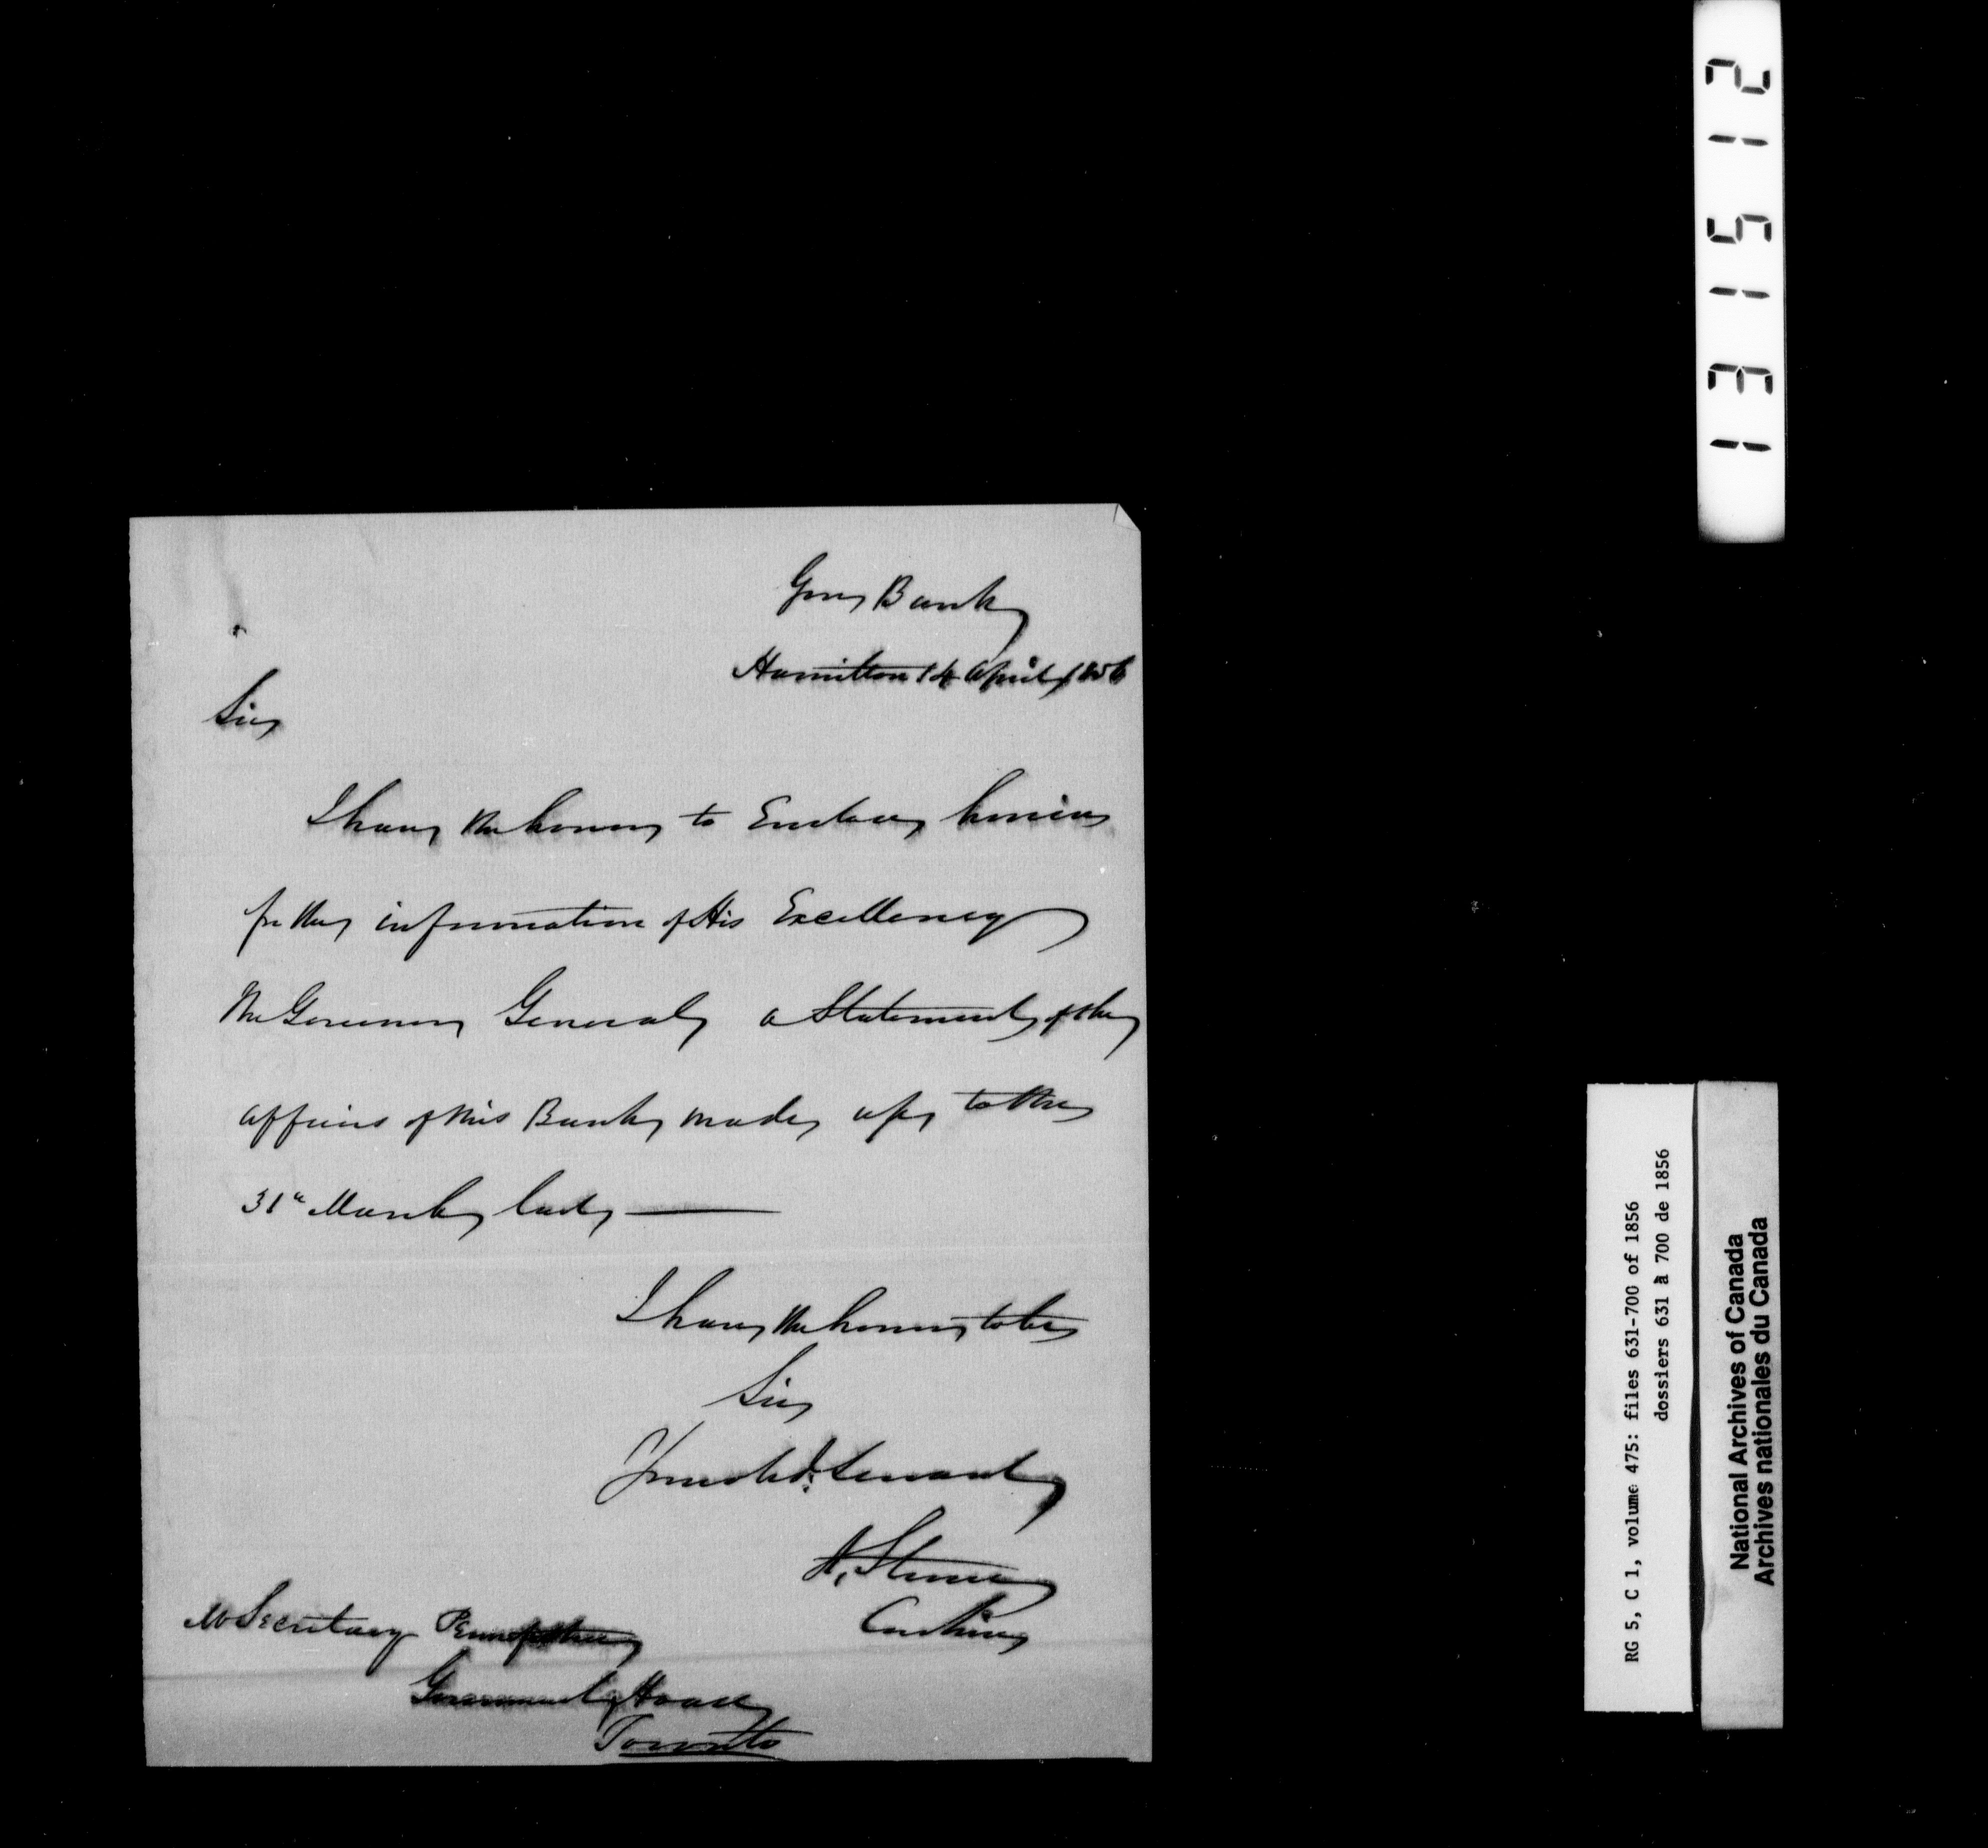 Gore Bank
Hamilton 14 April 1856
Sir
I have the honor to Enclose herein
for the information of His Excellency
The Governor General a Statement of the
affairs of this Bank made up to the
31st March last
I have the honor to be
Sir
Your obdt. Servant
A. Steven
Cashier
Mr Secretary Pennefather
Government House
Toronto
131512
RG 5, C 1, volume 475: files 631-700 of 1856
dossiers 631 à 700 de 1856
National Archives of Canada
Archives nationales du Canada